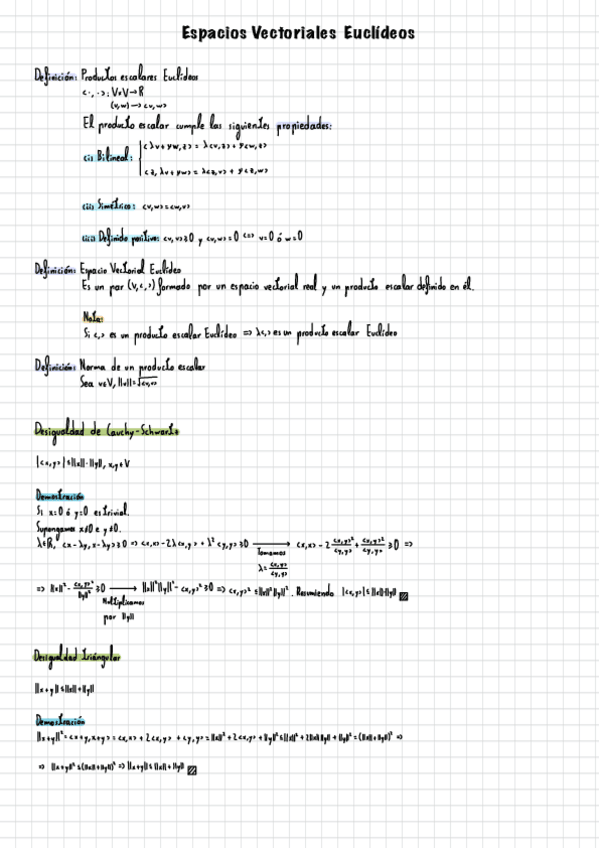 Espacios Vectoriales Euclídeos
Definición: Productos escalares Euclídeos
<·,·>: V×V→R
(v,w)→<v,w>
El producto escalar cumple las siguientes propiedades:
(i) Bilineal: <λv+μw,z> = λ<v,z> + μ<w,z>
<z, λv+μw> = λ<z,v> + μ<z,w>
(ii) Simétrico: <v,w>=<w,v>
(iii) Definido positivo: <v,v>≥0 y <v,w>=0 <=> v=0 ó w=0
Definición: Espacio Vectorial Euclídeo
Es un par (V,<,>) formado por un espacio vectorial real y un producto escalar definido en él.
Nota:
Si <,> es un producto escalar Euclídeo => λ<,> es un producto escalar Euclídeo
Definición: Norma de un producto escalar
Sea v∈V, ||v||=√<v,v>
Desigualdad de Cauchy-Schwartz
|<x,y>| ≤ ||x||·||y||, x,y∈V
Demostración
Si x=0 ó y=0 es trivial.
Supongamos x≠0 e y≠0.
λ∈R, <x-λy,x-λy>≥0 => <x,x>-2λ<x,y> + λ²<y,y>≥0 → <x,x> - 2 <x,y>²/<y,y> + <x,y>²/<y,y> ≥0 =>
Tomamos
λ= <x,y>/<y,y>
=> ||x||² - <x,y>²/||y||² ≥0 → ||x||²||y||² - <x,y>² ≥0 => <x,y>² ≤ ||x||²||y||². Resumiendo |<x,y>| ≤ ||x||·||y||
Multiplicamos
por ||y||
Desigualdad triángular
||x+y|| ≤ ||x|| + ||y||
Demostración
||x+y||² = <x+y,x+y> = <x,x> + 2<x,y> + <y,y> = ||x||² + 2<x,y> + ||y||² ≤ ||x||² + 2||x||||y|| + ||y||² = (||x||+||y||)² =>
=> ||x+y||² ≤ (||x||+||y||)² => ||x+y|| ≤ ||x||+||y||